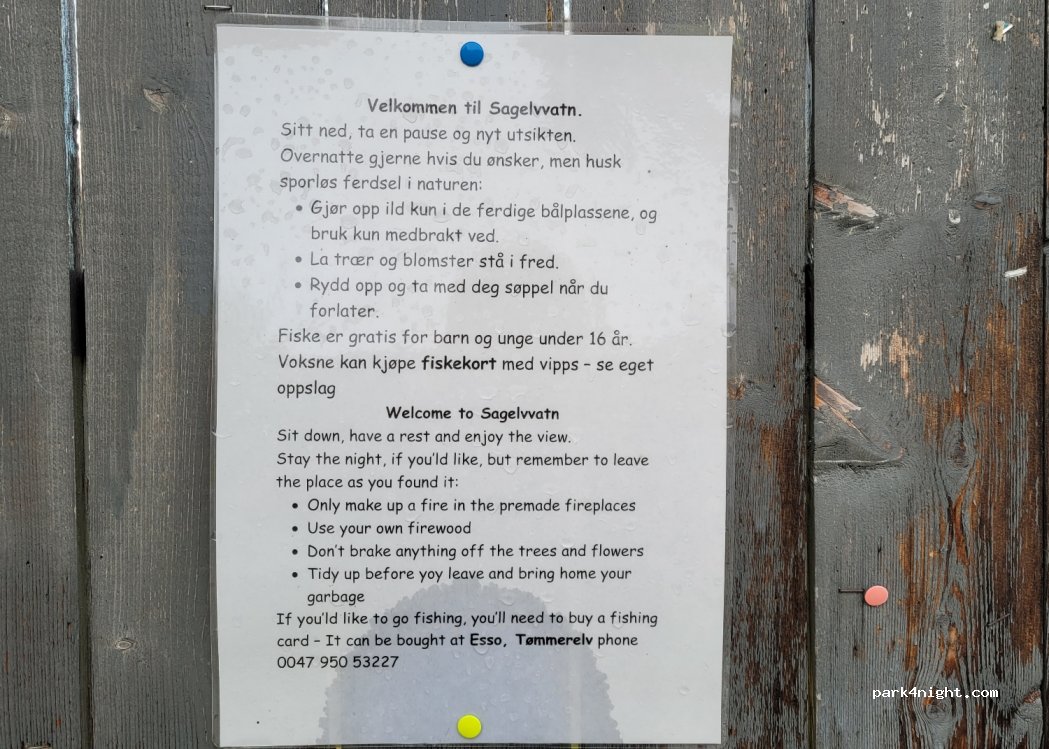 Velkommen til Sagelvvatn.
Sitt ned, ta en pause og nyt utsikten.
Overnatte gjerne hvis du ønsker, men husk
sporløs ferdsel i naturen:
• Gjør opp ild kun i de ferdige bålplassene, og
bruk kun medbrakt ved.
• La trær og blomster stå i fred.
• Rydd opp og ta med deg søppel når du
forlater.
Fiske er gratis for barn og unge under 16 år.
Voksne kan kjøpe fiskekort med vipps – se eget
oppslag
Welcome to Sagelvvatn
Sit down, have a rest and enjoy the view.
Stay the night, if you'ld like, but remember to leave
the place as you found it:
• Only make up a fire in the premade fireplaces
• Use your own firewood
• Don't brake anything off the trees and flowers
• Tidy up before yoy leave and bring home your
garbage
If you'ld like to go fishing, you'll need to buy a fishing
card – It can be bought at Esso, Tømmerelv phone
0047 950 53227
park4night.com